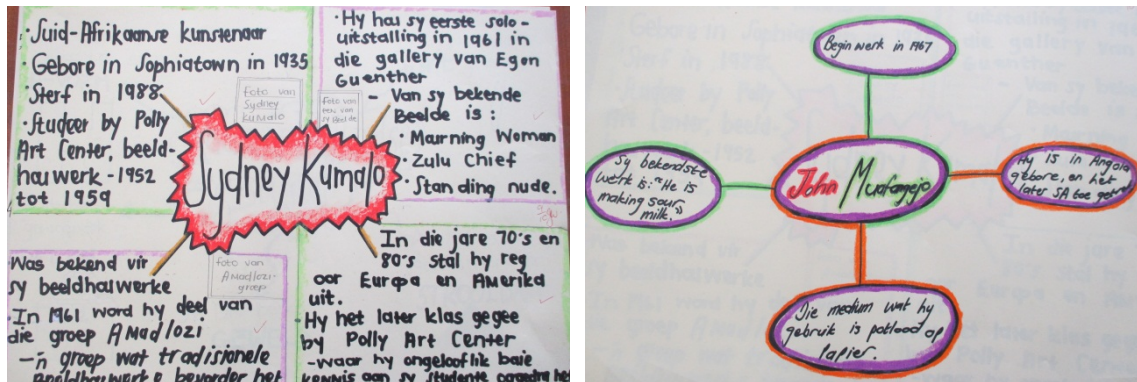 · Suid-Afrikaanse kunstenaar
· Gebore in Sophiatown in 1935
· Sterf in 1988
· Studeer by Polly
Art Center, beeld-
houwerk - 1952
tot 1959
Foto van
Sydney
Kumalo
· Hy hou sy eerste solo-
uitstalling in 1961 in
die gallery van Egon
Guenther
- Van sy bekende
Beelde is:
· Marning Woman
· Zulu Chief
· Standing nude.
Foto van
een van
sy Beelde
Sydney Kumalo
· Was bekend vir
sy beeldhouwerke
· In 1961 word hy deel van
die groep Amadlozi
- 'n groep wat tradisionele
beeldhouwerke bevorder het
Foto van
Amadlozi-
groep
· In die jare 70's en
80's stal hy reg
oor Europa en Amerika
uit.
· Hy het later klas gegee
by Polly Art Center
- waar hy ongelooflik baie
kennis aan sy studente
Begin werk in 1967
Sy bekendste
werk is: "He is
making sour
milk."
John Muafangejo
Hy is in Angola
gebore, en het
later SA toe
Die medium wat hy
gebruik is potlood op
papier.